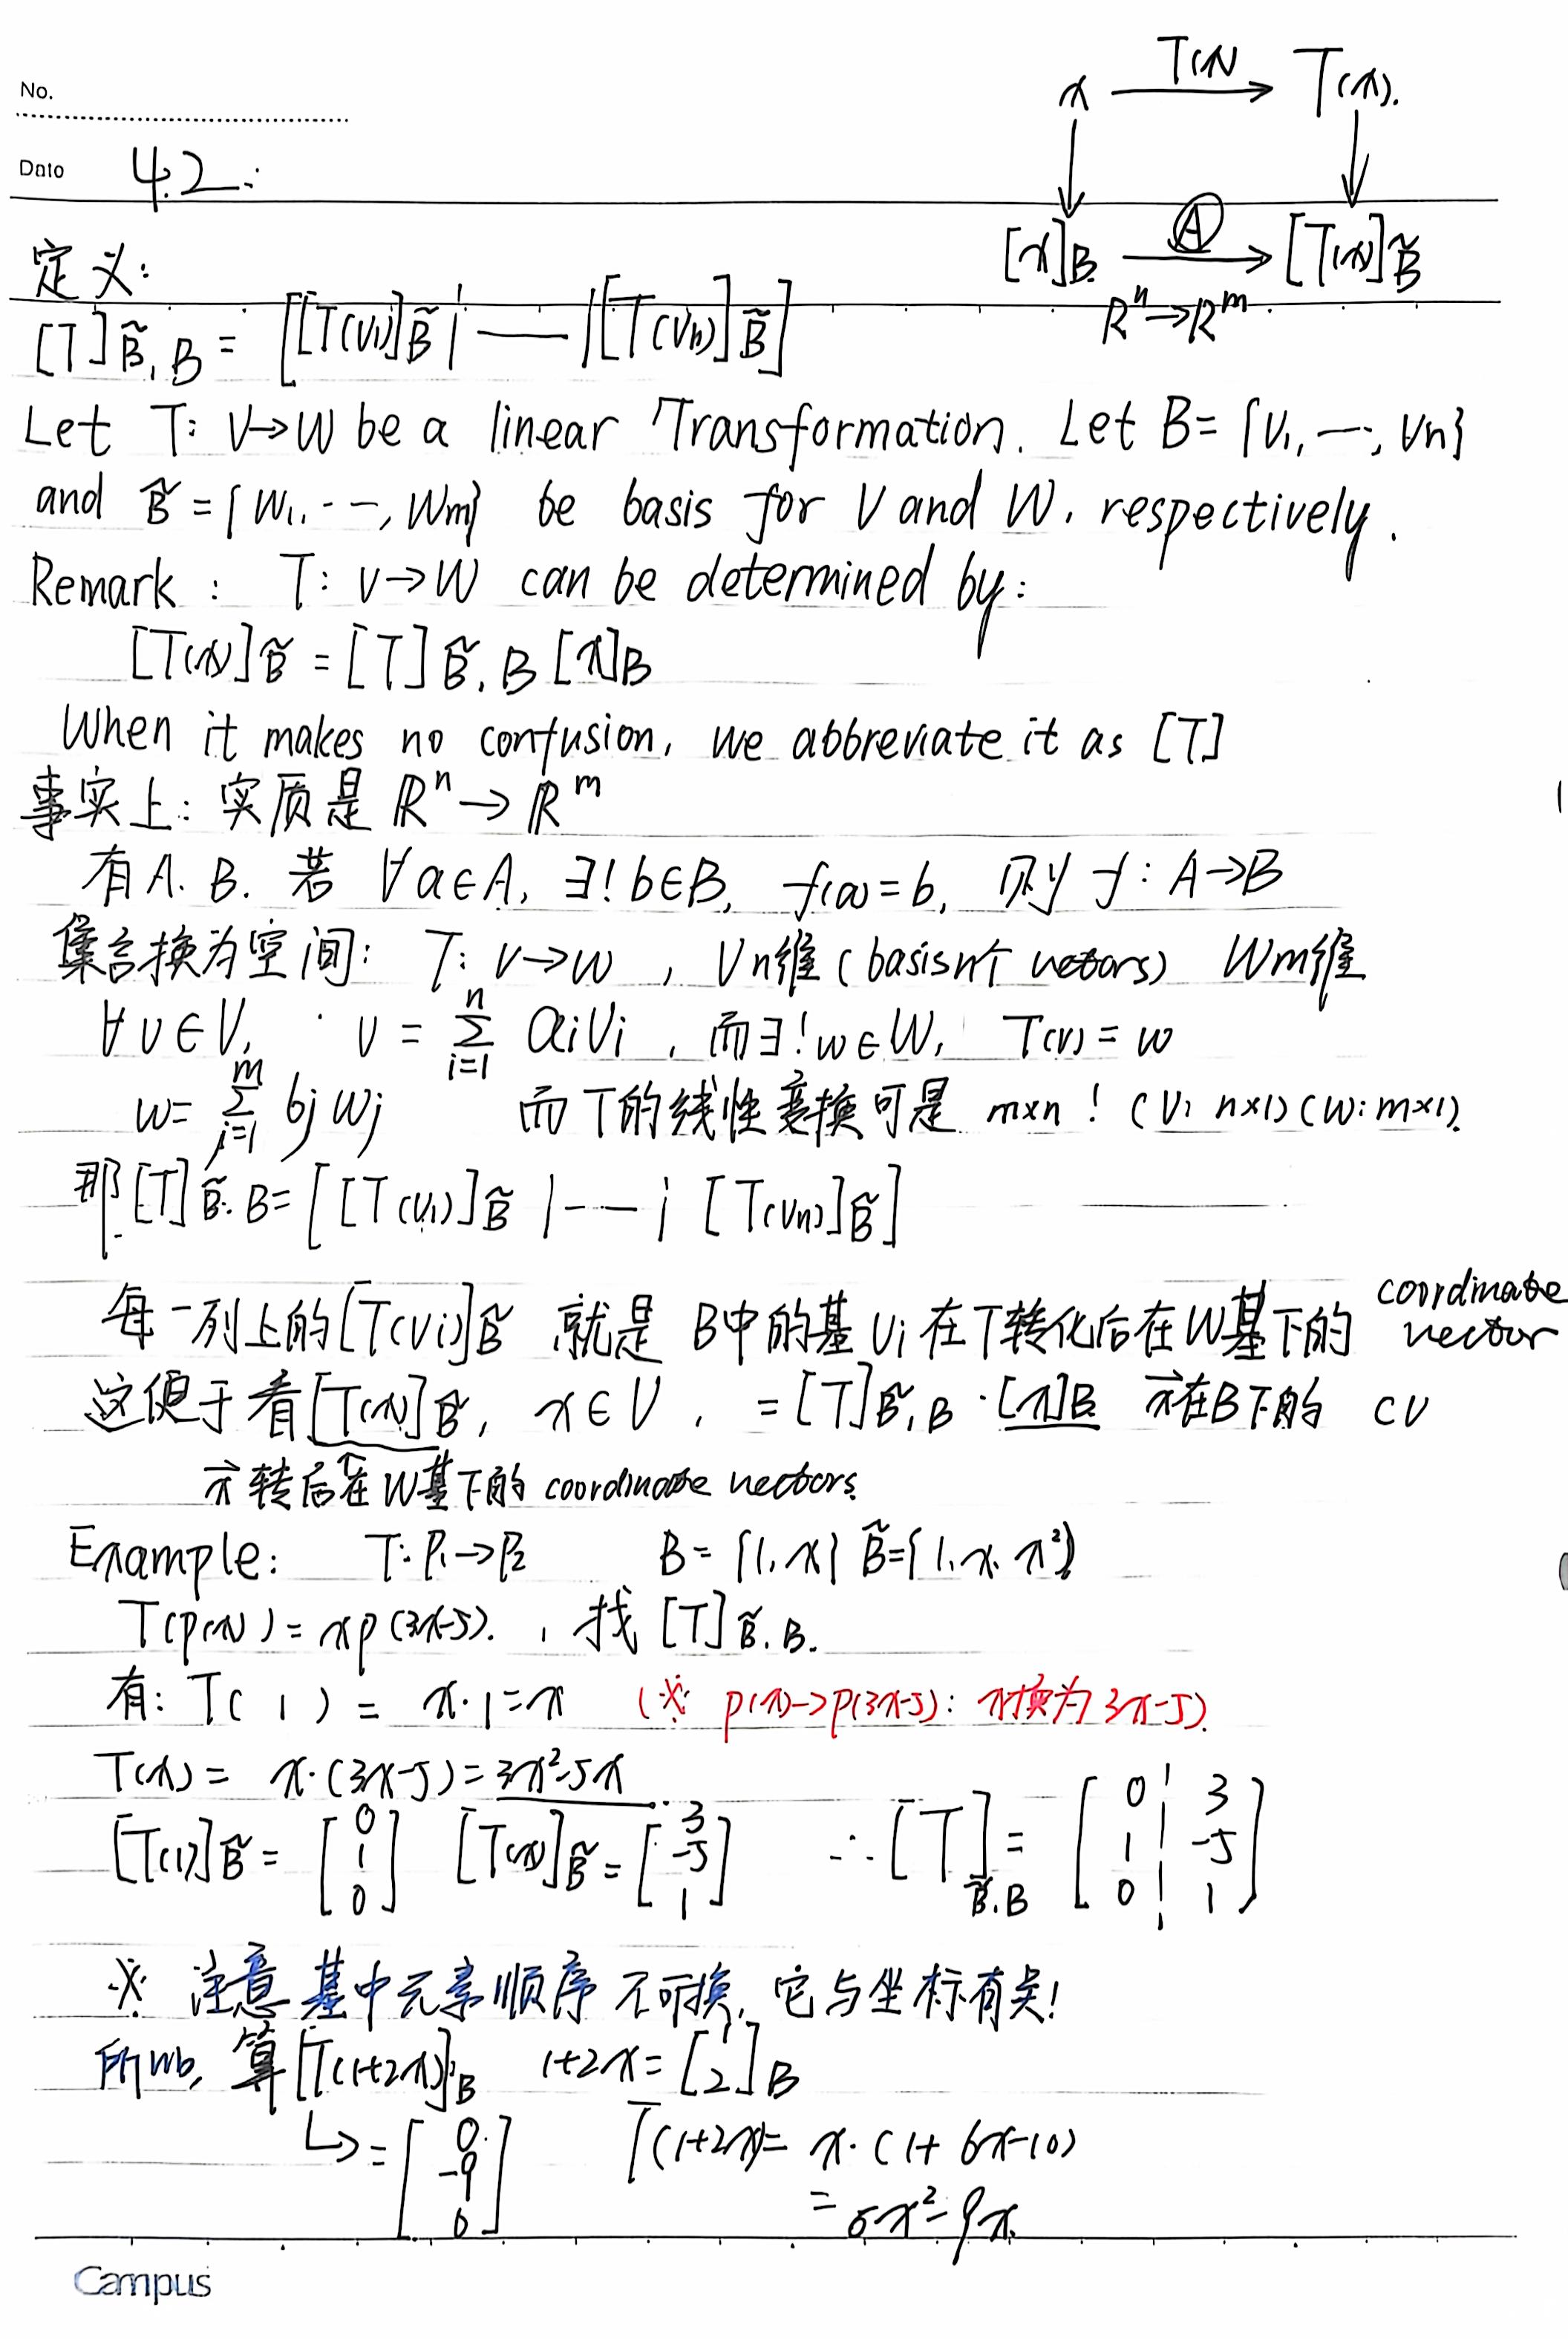 No.
Date 4.2:
x T(x) → T(x).
[x]B Ⓐ → [T(x)]B̃
Rⁿ→Rᵐ
定义:
[T]B̃,B = [[T(v₁)]B̃ | —— | [T(vn)]B̃]
Let T: V→W be a linear Transformation. Let B = {v₁, ⋯, vn}
and B̃ = {w₁, ⋯, wm} be basis for V and W, respectively.
Remark : T: V→W can be determined by:
[T(x)]B̃ = [T]B̃,B [x]B
When it makes no confusion, we abbreviate it as [T]
事实上: 实质是 Rⁿ → Rᵐ
有A. B. 若 ∀a∈A, ∃! b∈B, f(a)=b, 则 f: A→B
集合换为空间: T: V→W , V n维 (basis n个 vectors) W m维
∀v∈V, v = ∑ⁿᵢ₌₁ aᵢvᵢ , 而∃! w∈W, T(v) = w
w = ∑ᵐⱼ₌₁ bⱼwⱼ 而T的线性变换可是 m×n ! (V: n×1)(W: m×1).
那[T]B̃,B = [[T(v₁)]B̃ | —— | [T(vn)]B̃]
每一列上的[T(vi)]B̃ 就是 B中的基 vi 在T转化后在W基下的 coordinate vector
这便于看[T(x)]B̃, x∈V , = [T]B̃,B · [x]B x⃗在B下的 cv
x⃗转后在W基下的 coordinate vectors.
Example: T: P₁→P₂ B = {1, x} B̃ = {1, x, x²}
T(p(x)) = xp(3x-5). , 找 [T]B̃,B.
有: T( 1 ) = x·1 = x (※ p(x)→p(3x-5): x换为 3x-5).
T(x) = x·(3x-5) = 3x²-5x
[T(1)]B̃ = [0 1 0] [T(x)]B̃ = [3 -5 1] ∴ [T]B̃,B = [0 3; 1 -5; 0 1]
※ 注意 基中元素顺序 不可换, 它与坐标有关!
所以, 算[T(1+2x)]B 1+2x = [1 2]B
↳ = [0 -9 6] T(1+2x) = x·(1+6x-10)
= 6x²-9x.
Campus